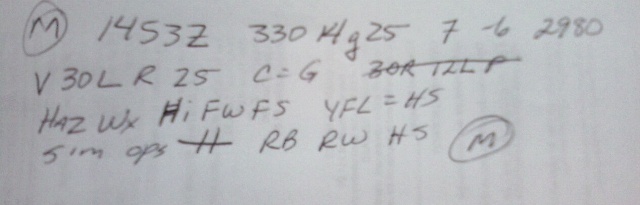 M 1453Z 330 14g25 7 -6 2980
V 30L R 25 C=G 30R 12L P
HAZ Wx Hi FW FS YFL = HS
sim ops H RB RW HS M